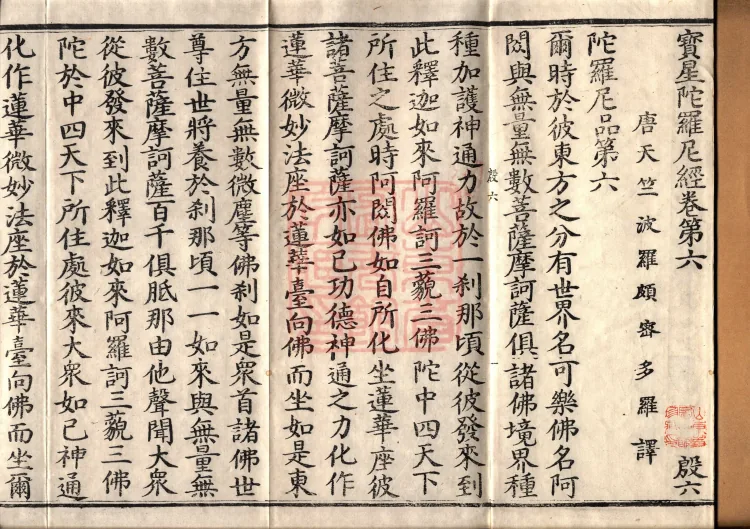 寶星陀羅尼經卷第六
殷六
唐天竺波羅頗蜜多羅譯
陀羅尼品第六
爾時於彼東方之分有世界名可樂佛名阿
閦與無量無數菩薩摩訶薩俱諸佛境界種
殷六
種加護神通力故於一剎那頃從彼發來到
此釋迦如來阿羅訶三藐三佛陀中四天下
所住之處時阿閦佛如自所化坐蓮華座彼
諸菩薩摩訶薩亦如己功德神通之力化作
蓮華微妙法座於蓮華臺向佛而坐如是東
方無量無數微塵等佛剎如是眾首諸佛世
尊住世將養於剎那頃一一如來與無量無
數菩薩摩訶薩百千俱胝那由他聲聞大眾
從彼發來到此釋迦如來阿羅訶三藐三佛
陀於中四天下所住處彼來大眾如己神通
化作蓮華微妙法座於蓮華臺向佛而坐爾